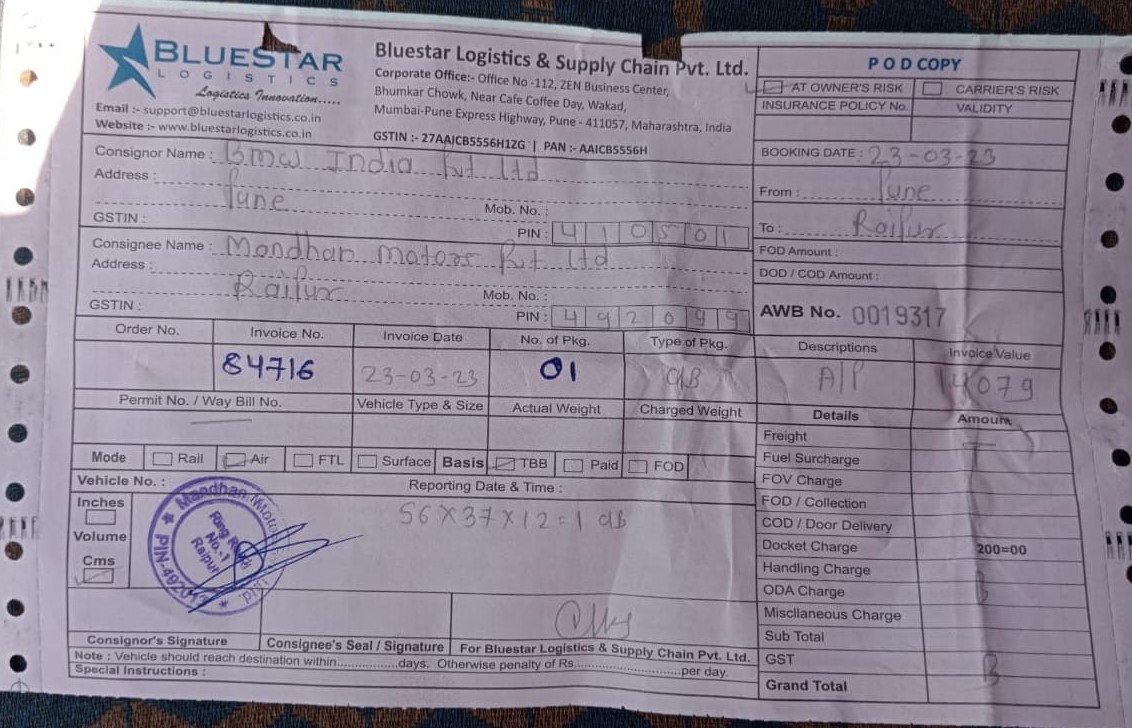 BLUESTAR
LOGISTICS
Logistics Innovation.....
Email :- support@bluestarlogistics.co.in
Website :- www.bluestarlogistics.co.in
Bluestar Logistics & Supply Chain Pvt. Ltd.
Corporate Office:- Office No -112, ZEN Business Center,
Bhumkar Chowk, Near Cafe Coffee Day, Wakad,
Mumbai-Pune Express Highway, Pune - 411057, Maharashtra, India
GSTIN :- 27AAICB5556H1ZG | PAN :- AAICB5556H
POD COPY
AT OWNER'S RISK CARRIER'S RISK
INSURANCE POLICY No. VALIDITY
BOOKING DATE : 23-03-23
Consignor Name : Bmw India Pvt ltd
Address : Pune
Mob. No. :
GSTIN :
PIN : 410501
From : Pune
To : Raipur
FOD Amount :
DOD / COD Amount :
Consignee Name : Mandhan Motors Pvt ltd
Address : Raipur
Mob. No. :
GSTIN :
PIN : 492099
AWB No. 0019317
Order No. Invoice No. Invoice Date No. of Pkg. Type of Pkg. Descriptions Invoice Value
84716 23-03-23 01 CIB A/P 14079
Permit No. / Way Bill No. Vehicle Type & Size Actual Weight Charged Weight
Details Amount
Mode Rail Air FTL Surface Basis TBB Paid FOD
Vehicle No. : Reporting Date & Time :
Inches
Volume
Cms
56X37X12=1 CIB
Mandhan Motors
Ring Road
No.-1
Raipur
Freight
Fuel Surcharge
FOV Charge
FOD / Collection
COD / Door Delivery
Docket Charge 200=00
Handling Charge
ODA Charge
Miscllaneous Charge
Sub Total
GST
Grand Total
Consignor's Signature Consignee's Seal / Signature For Bluestar Logistics & Supply Chain Pvt. Ltd.
Note : Vehicle should reach destination within................days. Otherwise penalty of Rs...........................per day.
Special Instructions :